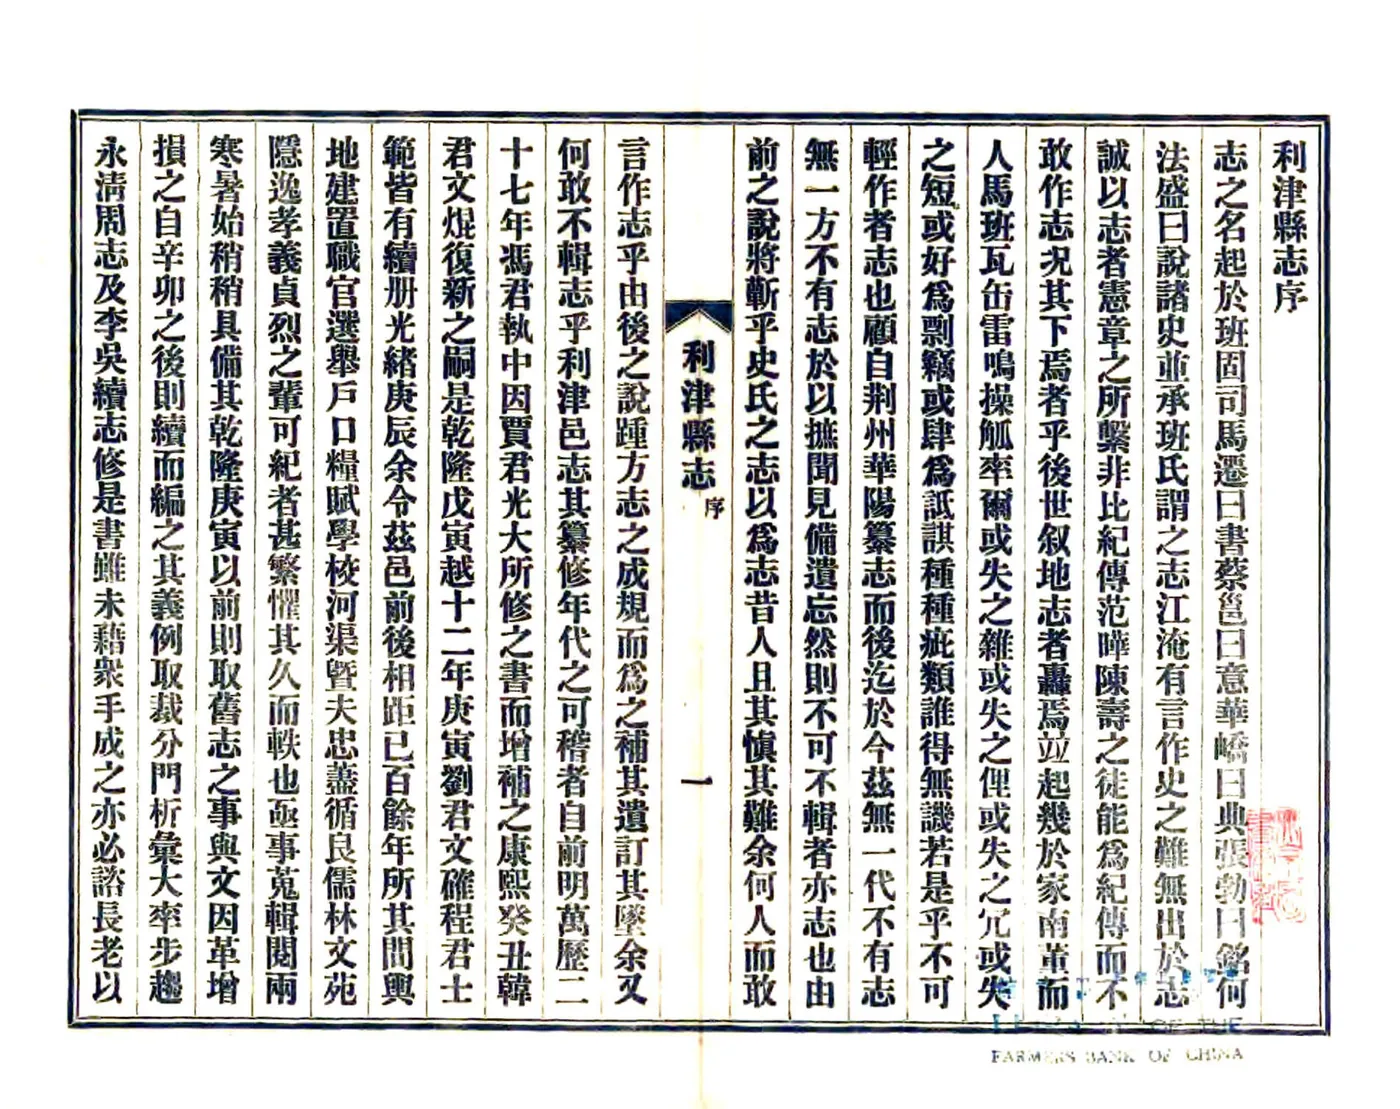 利津縣志序
志之名起於班固司馬遷曰書蔡邕曰意華嶠曰典張勃曰銘何
法盛曰說諸史並承班氏謂之志江淹有言作史之難無出於志
誠以志者憲章之所繫非比紀傳范曄陳壽之徒能爲紀傳而不
敢作志况其下焉者乎後世叙地志者轟焉竝起幾於家南董而
人馬班瓦缶雷鳴操觚率爾或失之雜或失之俚或失之冗或失
之短或好爲剽竊或肆爲詆諆種種疵類誰得無譏若是乎不可
輕作者志也顧自荆州華陽纂志而後迄於今茲無一代不有志
無一方不有志於以摭聞見備遺忘然則不可不輯者亦志也由
前之說將蘄乎史氏之志以爲志昔人且其愼其難余何人而敢
利津縣志
序
一
言作志乎由後之說踵方志之成規而爲之補其遺訂其墜余又
何敢不輯志乎利津邑志其纂修年代之可稽者自前明萬歷二
十七年馮君執中因賈君光大所修之書而增補之康熙癸丑韓
君文焜復新之嗣是乾隆戊寅越十二年庚寅劉君文確程君士
範皆有續册光緒庚辰余令茲邑前後相距已百餘年所其間輿
地建置職官選舉戶口糧賦學校河渠曁夫忠藎循良儒林文苑
隱逸孝義貞烈之輩可紀者甚繁懼其久而軼也亟事蒐輯閱兩
寒暑始稍稍具備其乾隆庚寅以前則取舊志之事與文因革增
損之自辛卯之後則續而編之其義例取裁分門析彙大率步趨
永淸周志及李吳續志修是書雖未藉衆手成之亦必諮長老以
OF THE
FARMERS BANK OF CHINA